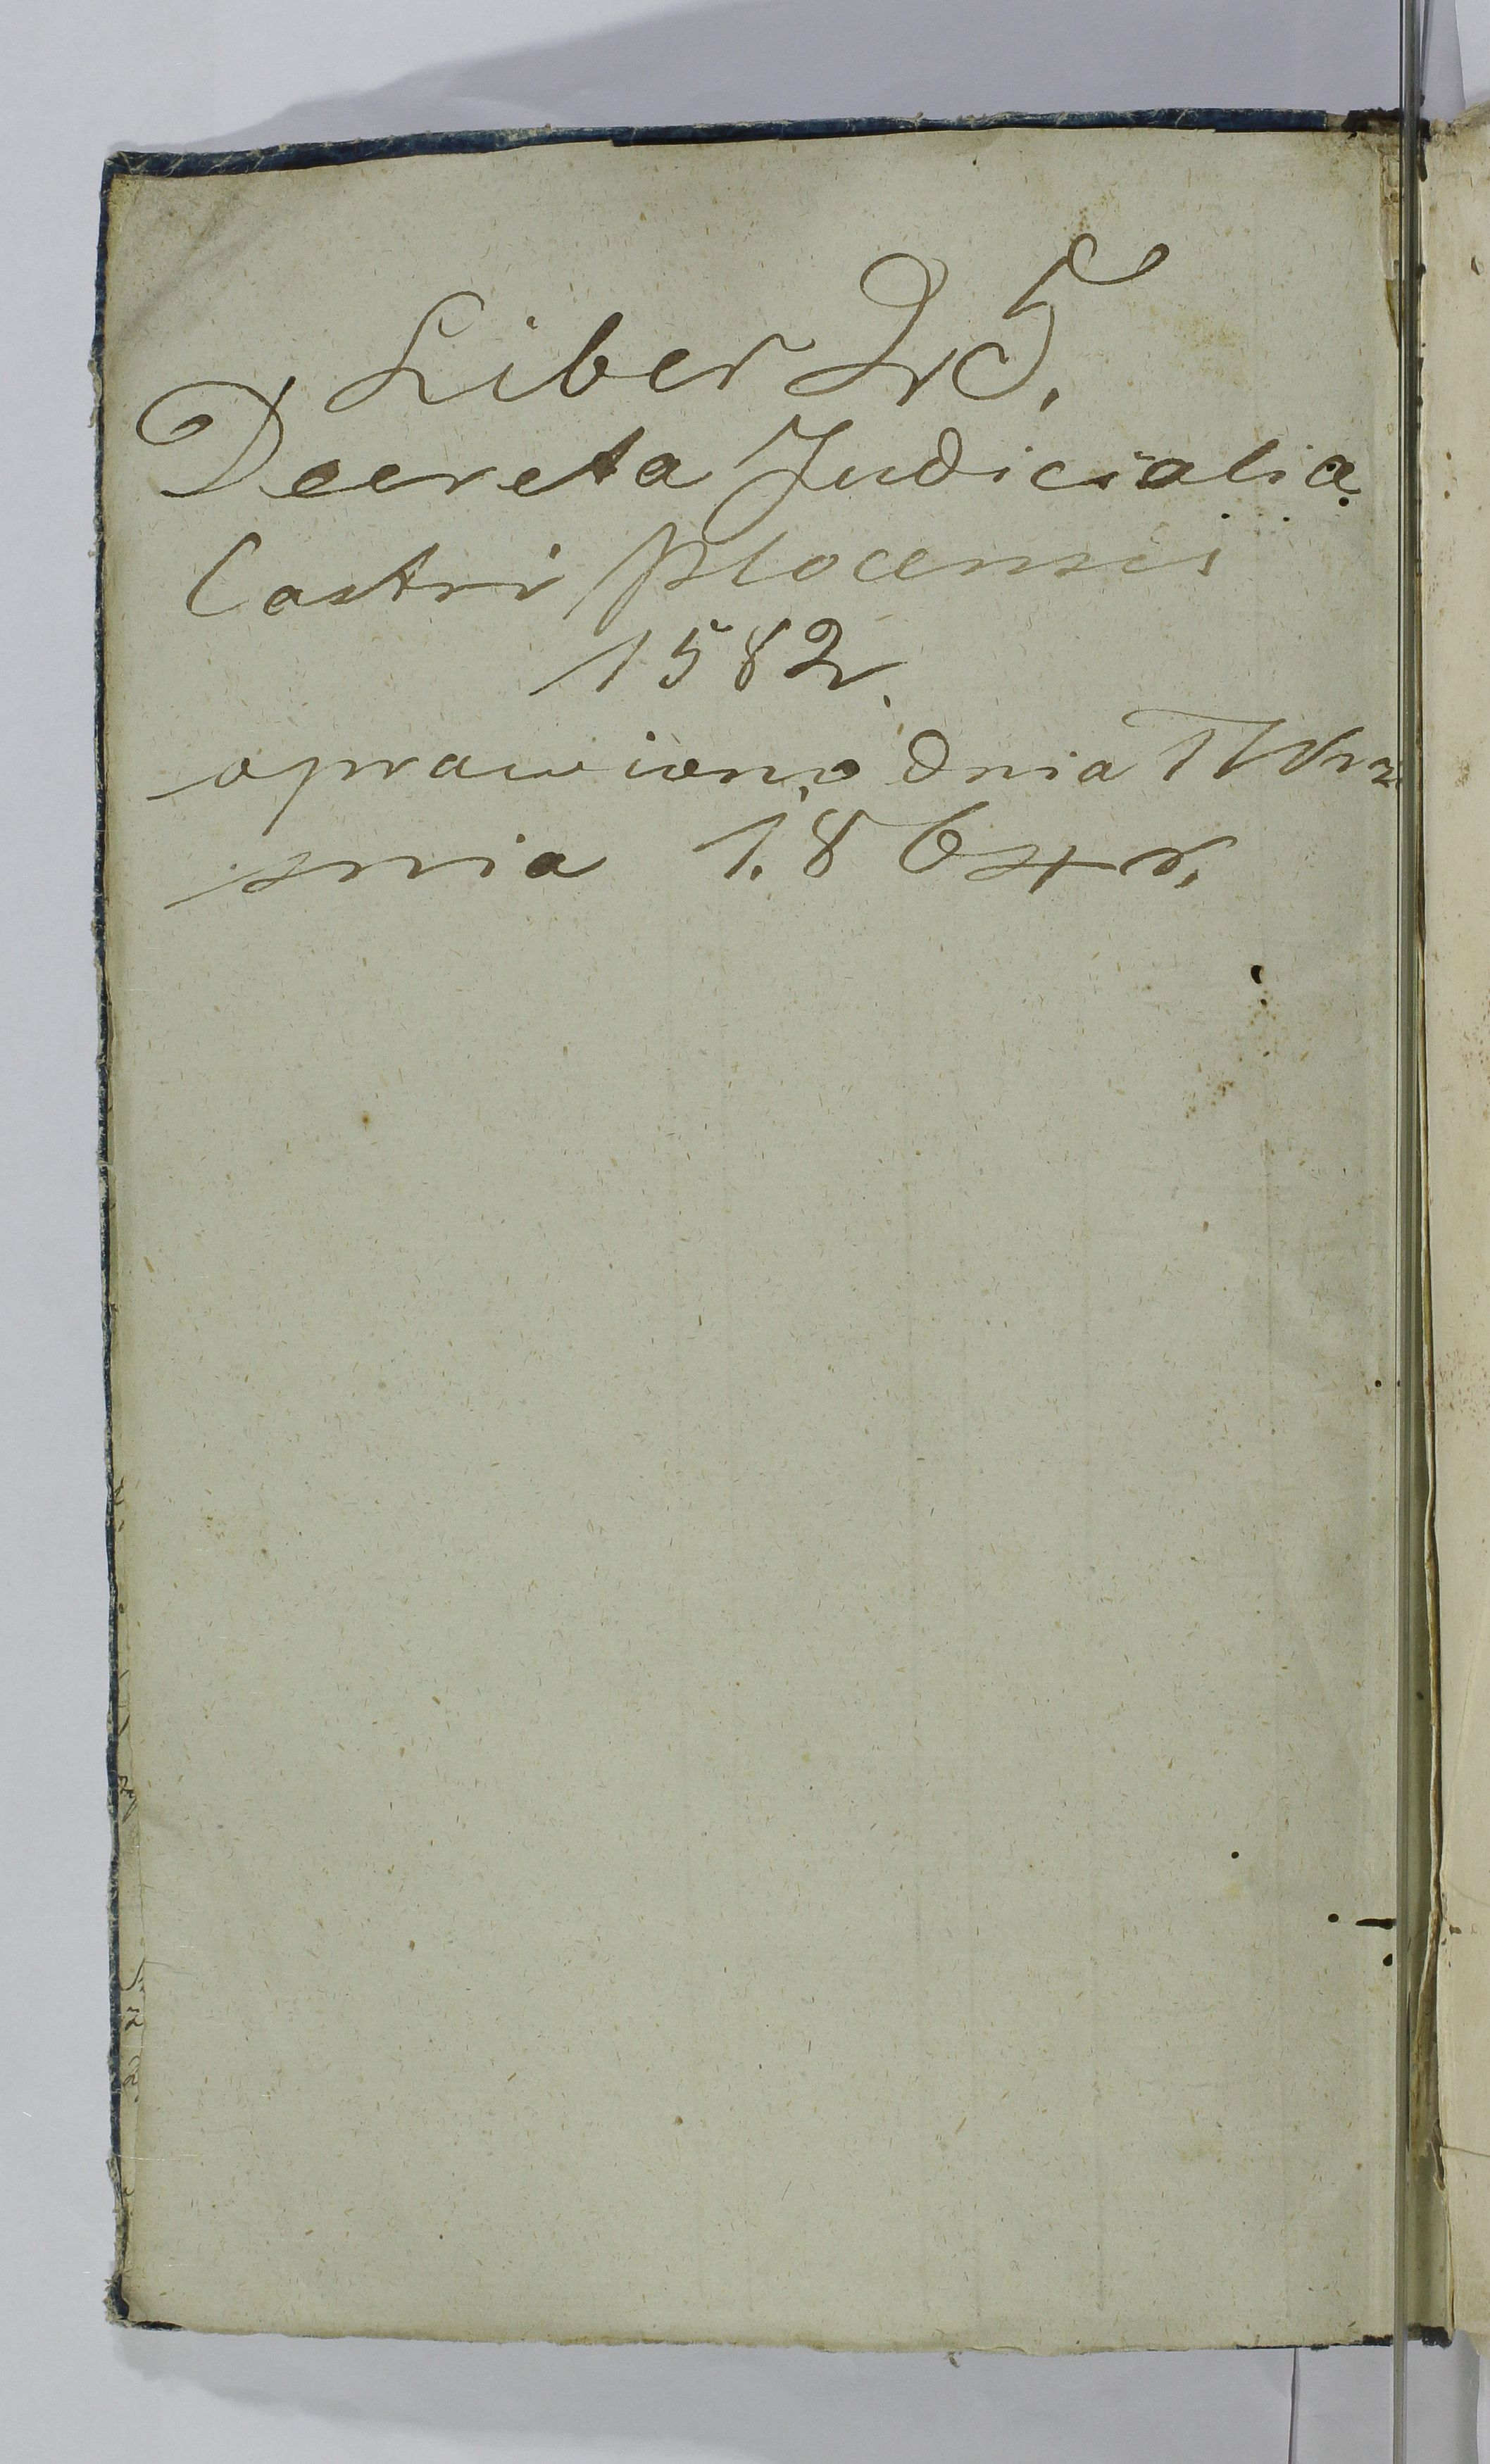 Liber 25.
Decreta Judicialia
Castri Plocensis
1582.
oprawiono dnia 17 Wrze
śnia 1864 r.